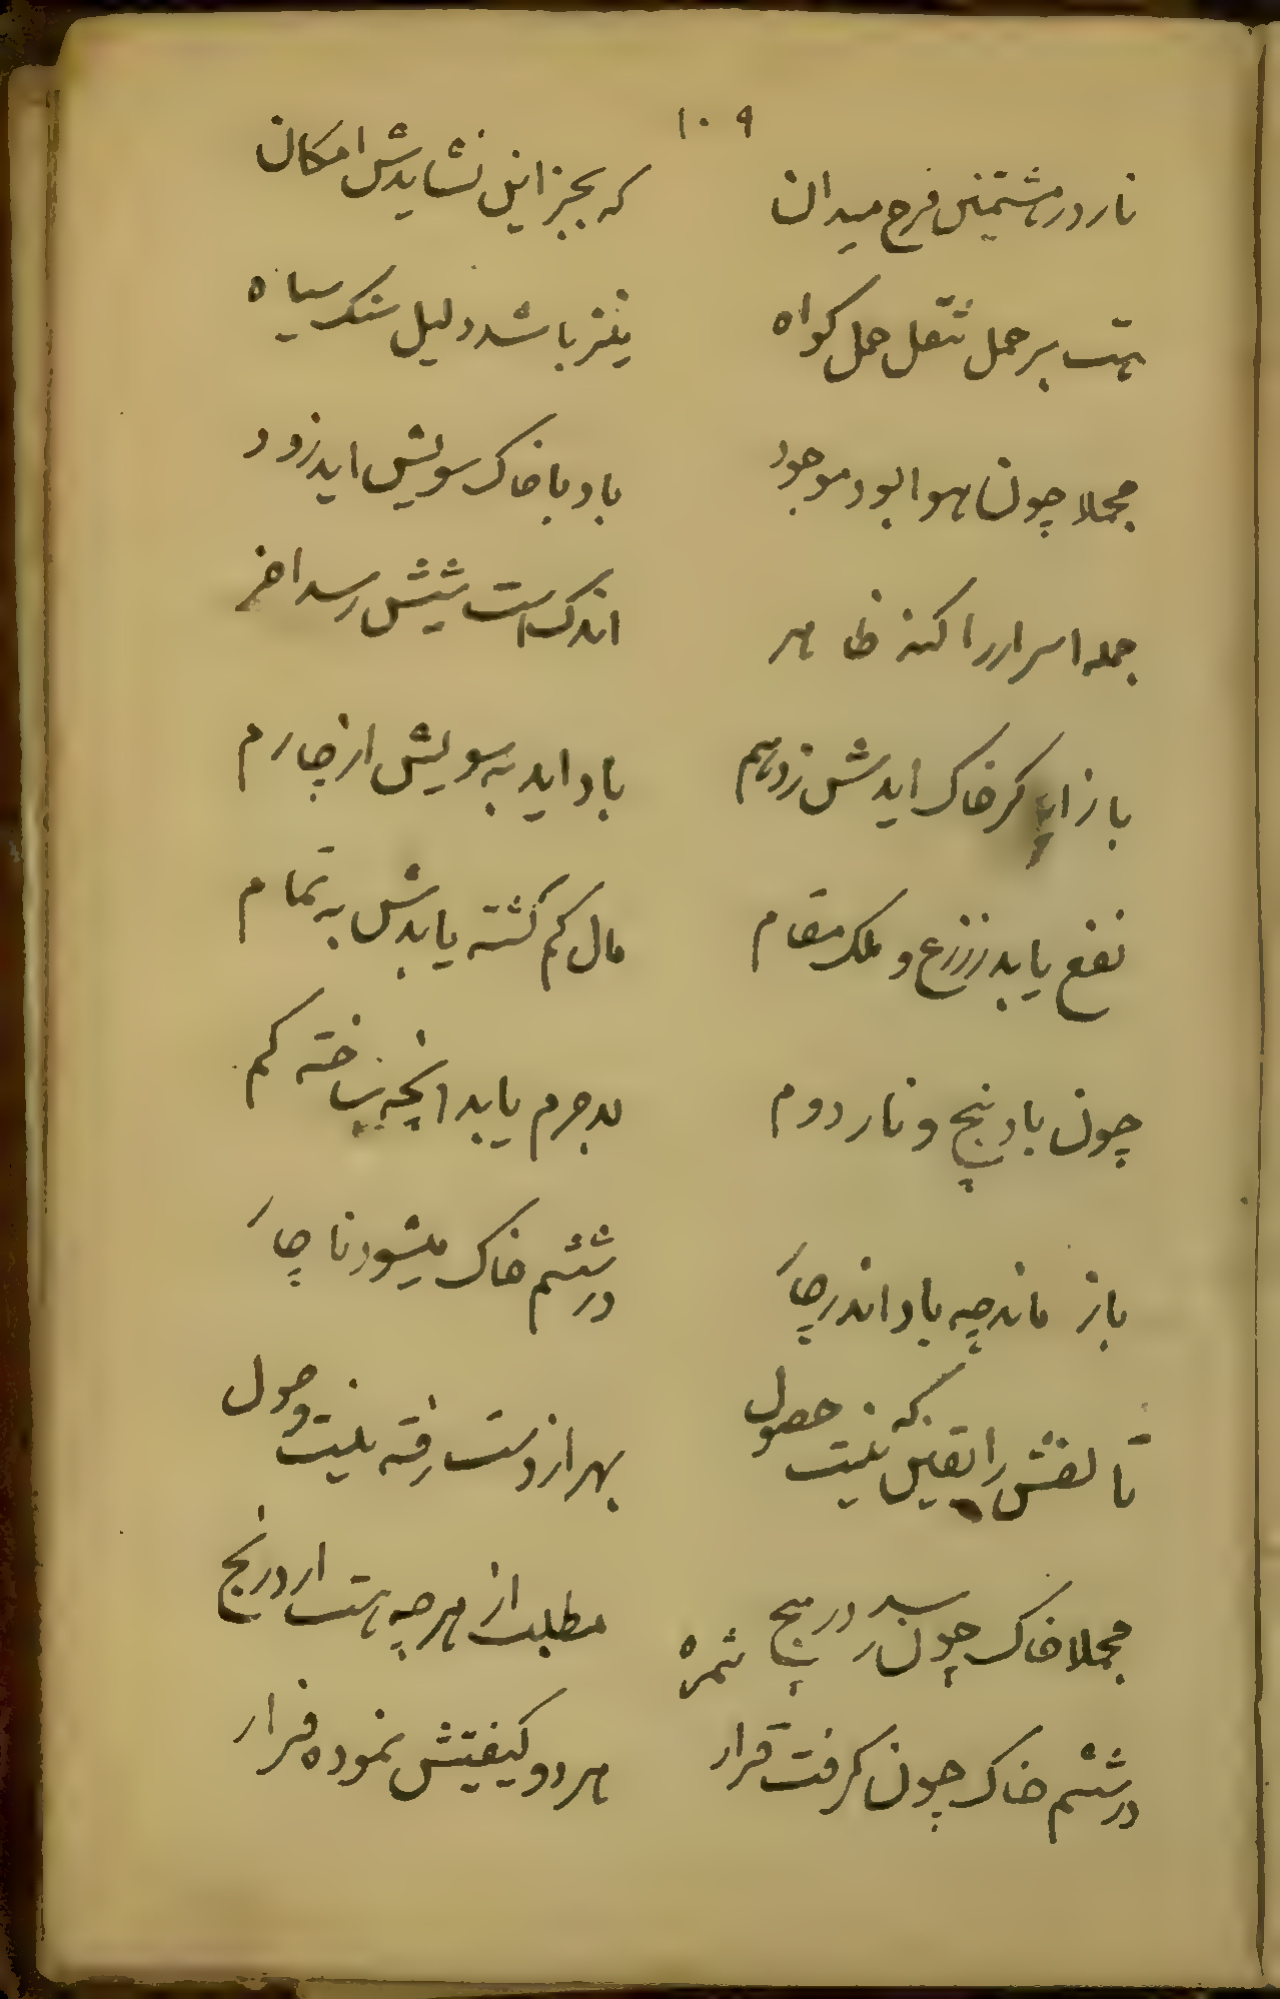 ۱۰۹
نار در هشتمین فرح میدان
که بجز این نشایدش امکان
هست بر حمل ثقل حمل کواه
نیز باشد دلیل سنک سیاه
مجملا چون هوا بود موجود
باد با خاک سویش اید زود
جمله اسرار را کند ظاهر
اندک است شیش رسد اخر
باز کر خاک ایدش زدهم
باد اید به سویش از چارم
نفع یابد ززرع و ملک مقام
مال کم کشته یابدش به تمام
چون باد پنج و نار دوم
لاجرم یابد انچه ساخته کم
باز ماند چه باد اندر چار
در ششم خاک میشود ناچار
تا لفش را یقین که نیست حصول
بهر از دست رفته نیست وصول
مجملا خاک چون رسد در پنج
مطلب از هر چه هست ار در رنج
ثمره
در ششم خاک چون کرفت قرار
هر دو کیفیتش نموده فرار